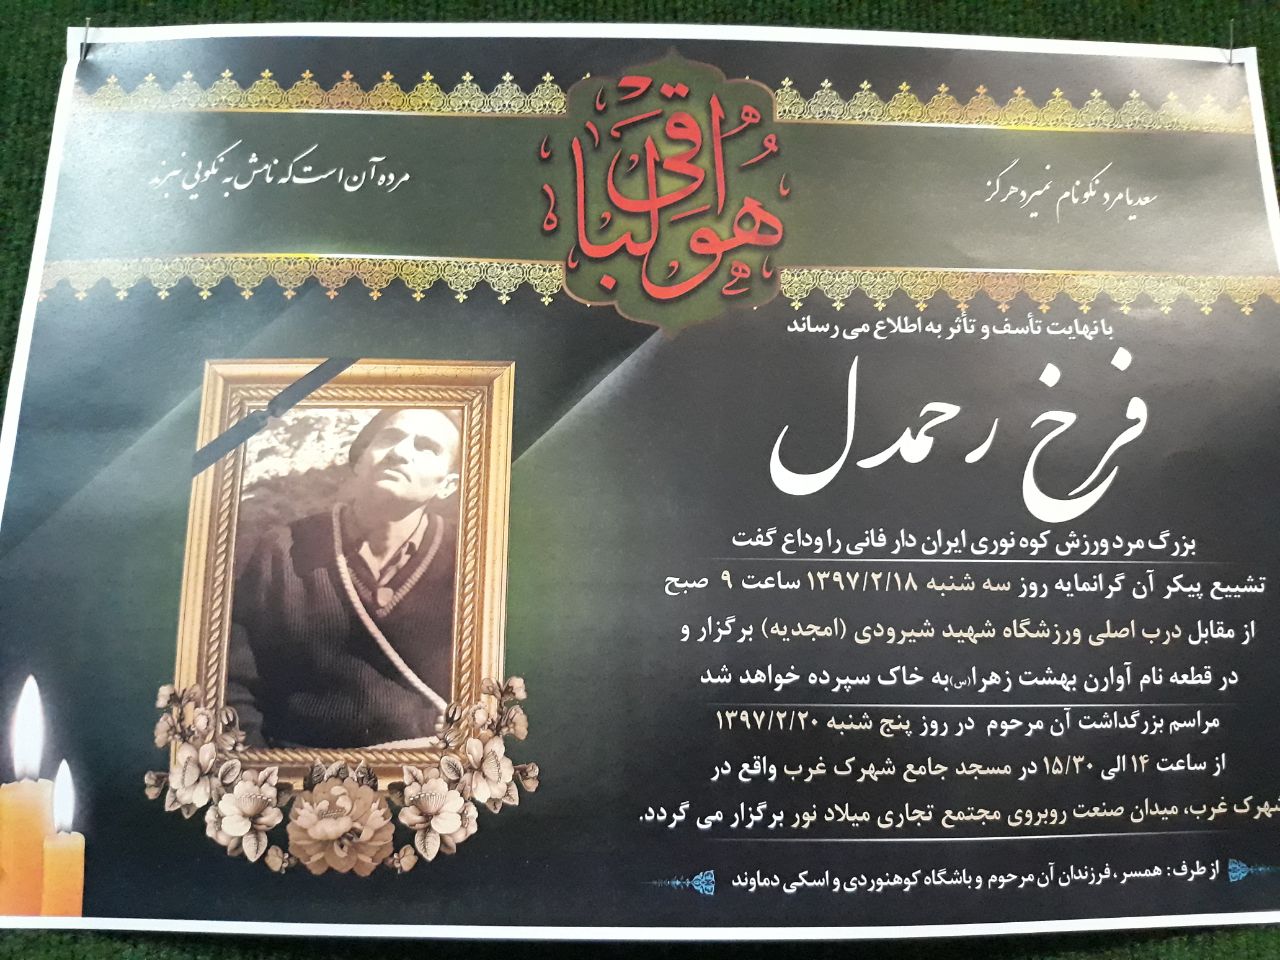 هو الباقی
سعدیا مرد نکونام نمیرد هرگز
مرده آن است که نامش به نکویی نبرند
با نهایت تأسف و تأثر به اطلاع می رساند
فرخ رحمدل
بزرگ مرد ورزش کوه نوری ایران دار فانی را وداع گفت
تشییع پیکر آن گرانمایه روز سه شنبه ۱۳۹۷/۲/۱۸ ساعت ۹ صبح
از مقابل درب اصلی ورزشگاه شهید شیرودی (امجدیه) برگزار و
در قطعه نام آوارن بهشت زهرا(س)به خاک سپرده خواهد شد
مراسم بزرگداشت آن مرحوم در روز پنج شنبه ۱۳۹۷/۲/۲۰
از ساعت ۱۴ الی ۱۵/۳۰ در مسجد جامع شهرک غرب واقع در
شهرک غرب، میدان صنعت روبروی مجتمع تجاری میلاد نور برگزار می گردد.
از طرف: همسر، فرزندان آن مرحوم و باشگاه کوهنوردی و اسکی دماوند